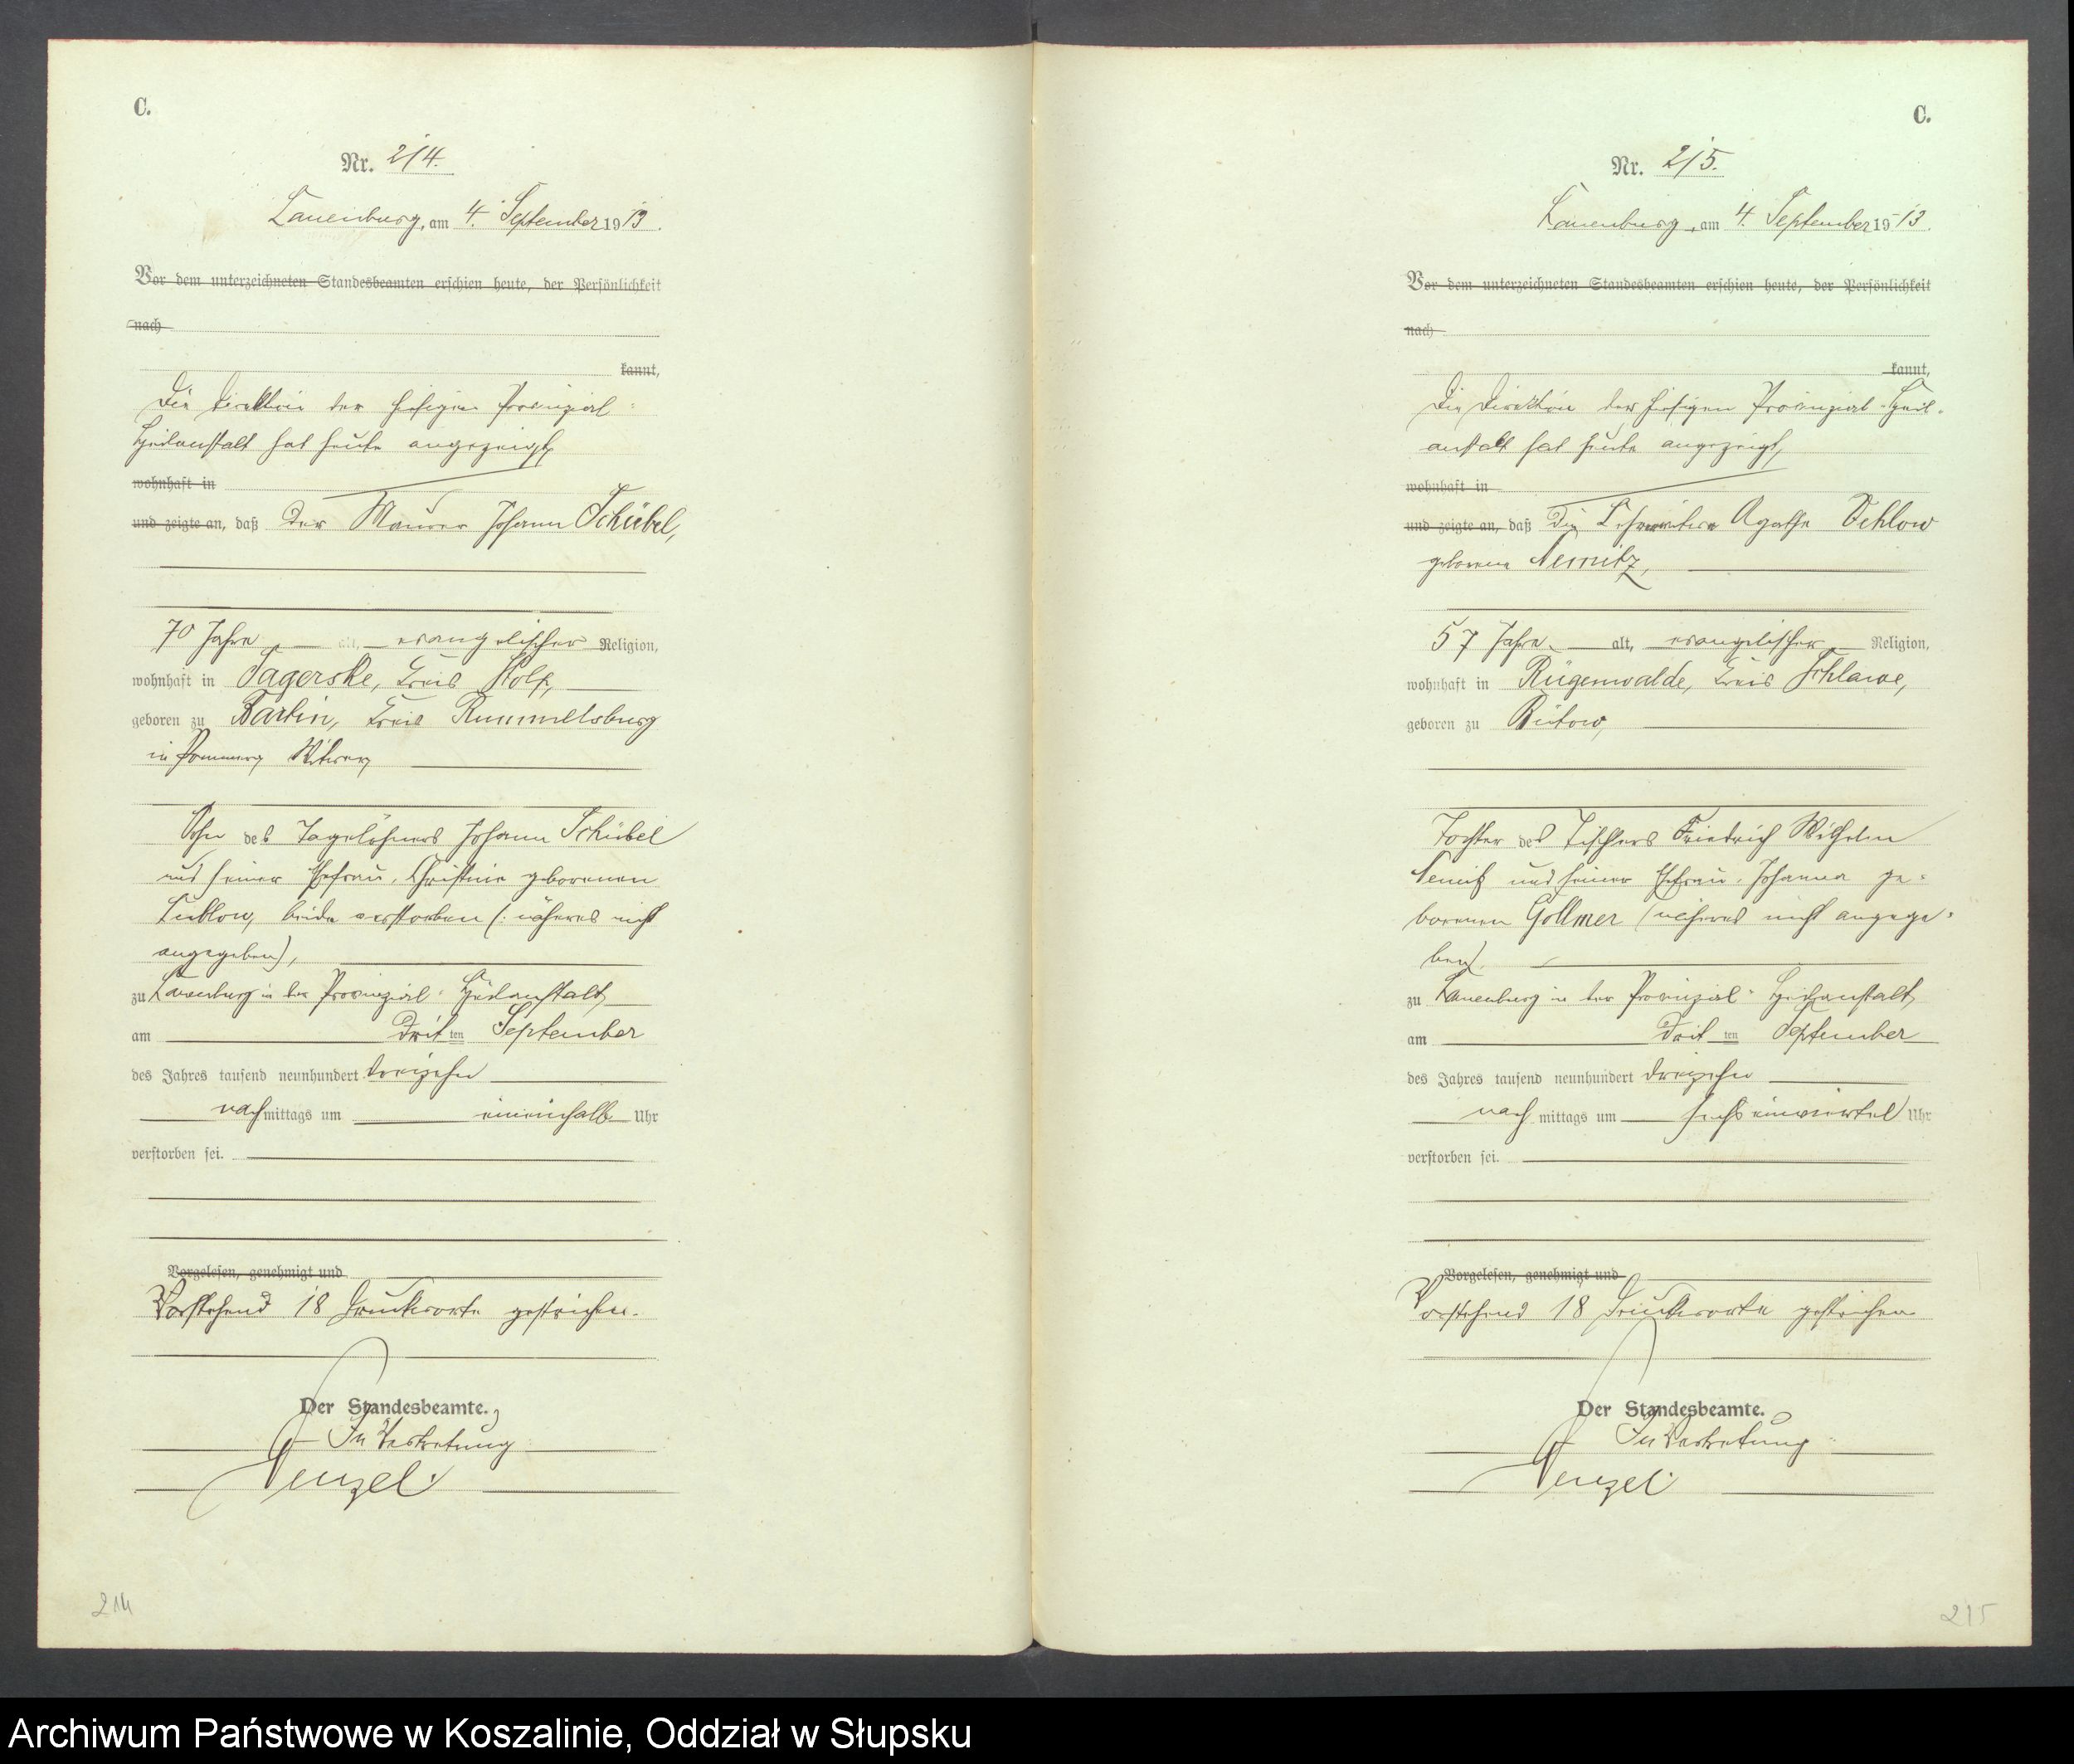 C.
Nr. 214.
Lauenburg, am 4. September 1913.
Vor dem unterzeichneten Standesbeamten erschien heute, der Persönlichkeit
nach
kannt,
Die Direktion der hiesigen Provinzial-
Heilanstalt hat heute angezeigt,
wohnhaft in
und zeigte an, daß der Maurer Johann Schübel,
70 Jahre alt, evangelischer Religion,
wohnhaft in Sagerske, Kreis Stolp,
geboren zu Bartin, Kreis Rummelsburg
in Pommern, Witwer,
Sohn des Tagelöhners Johann Schübel
und seiner Ehefrau, Christine geborenen
Lublow, beide verstorben (: näheres nicht
angegeben),
zu Lauenburg in der Provinzial-Heilanstalt,
am dritten September
des Jahres tausend neunhundert dreizehn
nachmittags um eineinhalb Uhr
verstorben sei.
Vorgelesen, genehmigt und
Vorstehend 18 Druckworte gestrichen.
Der Standesbeamte.
In Vertretung
Wenzel.
214
C.
Nr. 215.
Lauenburg, am 4. September 1913.
Vor dem unterzeichneten Standesbeamten erschien heute, der Persönlichkeit
nach
kannt,
Die Direktion der hiesigen Provinzial-Heil-
anstalt hat heute angezeigt,
wohnhaft in
und zeigte an, daß die Agathe Oehlow
geborene Nemitz,
57 Jahre alt, evangelischer Religion,
wohnhaft in Rügenwalde, Kreis Schlawe,
geboren zu Bütow,
Tochter des Tischlers Friedrich Wilhelm
Nemitz und seiner Ehefrau, Johanna ge-
borenen Gollmer (näheres nicht angege-
ben)
zu Lauenburg in der Provinzial-Heilanstalt,
am dritten September
des Jahres tausend neunhundert dreizehn
nachmittags um sechseinviertel Uhr
verstorben sei.
Vorgelesen, genehmigt und
Vorstehend 18 Druckworte gestrichen
Der Standesbeamte.
In Vertretung
Wenzel.
215
Archiwum Państwowe w Koszalinie, Oddział w Słupsku